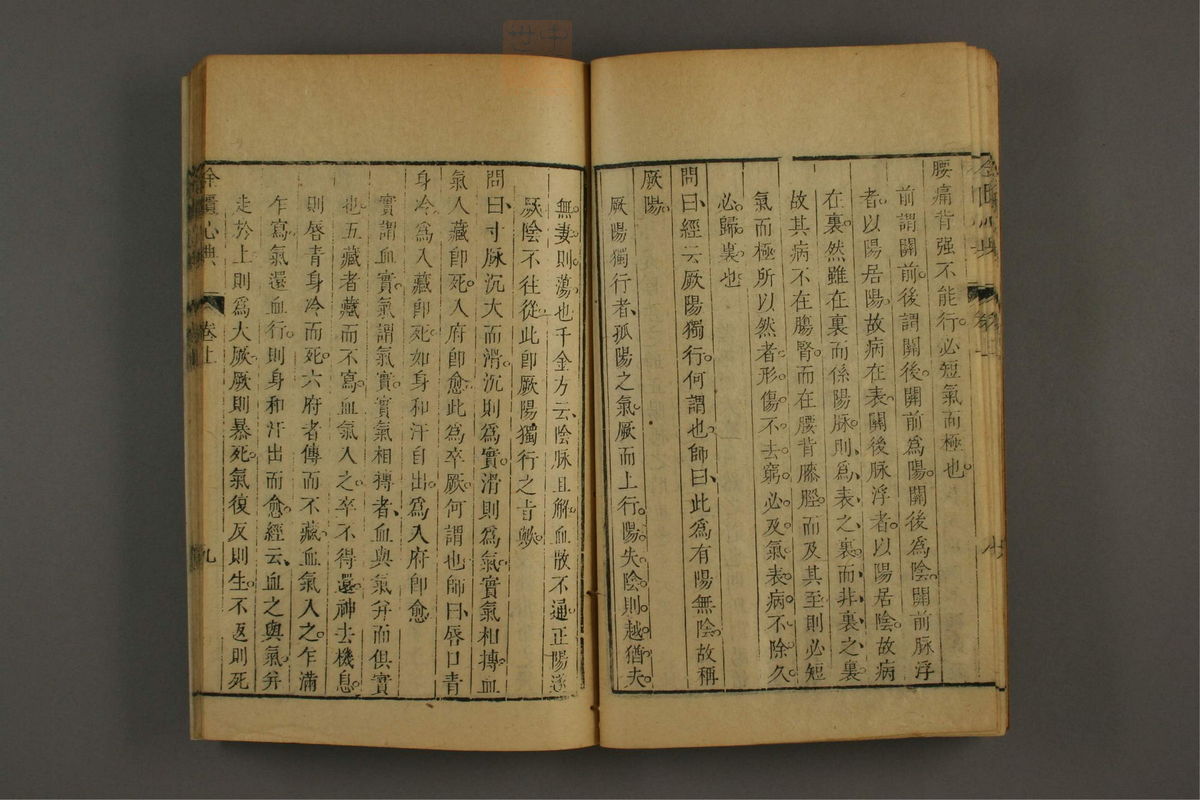 腰痛背强不能行。必短氣而極也。
前謂關前。後謂關後。關前爲陽。關後爲陰。關前脉浮
者。以陽居陽。故病在表。關後脉浮者。以陽居陰。故病
在裏。然雖在裏而係陽脉。則爲表之裏。而非裏之裏。
故其病不在腸腎。而在腰背膝脛。而及其至。則必短
氣而極。所以然者。形傷不去。窮必及氣。表病不除。久
必歸裏也
問曰、經云厥陽獨行。何謂也。師曰、此爲有陽無陰。故稱
厥陽。
厥陽獨行者、孤陽之氣。厥而上行。陽失陰則越。猶夫
無妻則蕩也。千金方云、陰脉且解。血散不通。正陽遂
厥。陰不往從。此卽厥陽獨行之旨歟。
問曰、寸脉沉大而滑。沉則爲實。滑則爲氣。實氣相摶。血
氣入藏卽死。入府卽愈。此爲卒厥。何謂也。師曰、唇口青
身冷。爲入藏卽死。如身和汗自出。爲入府卽愈
實謂血實。氣謂氣實。實氣相摶者、血與氣并而俱實
也。五藏者藏而不寫。血氣入之。卒不得還。神去機息。
則唇青身冷而死。六府者傳而不藏。血氣入之。乍滿
乍寫。氣還血行。則身和汗出而愈。經云、血之與氣。并
走於上。則爲大厥。厥則暴死。氣復反則生。不返則死
金匱心典
卷上
九